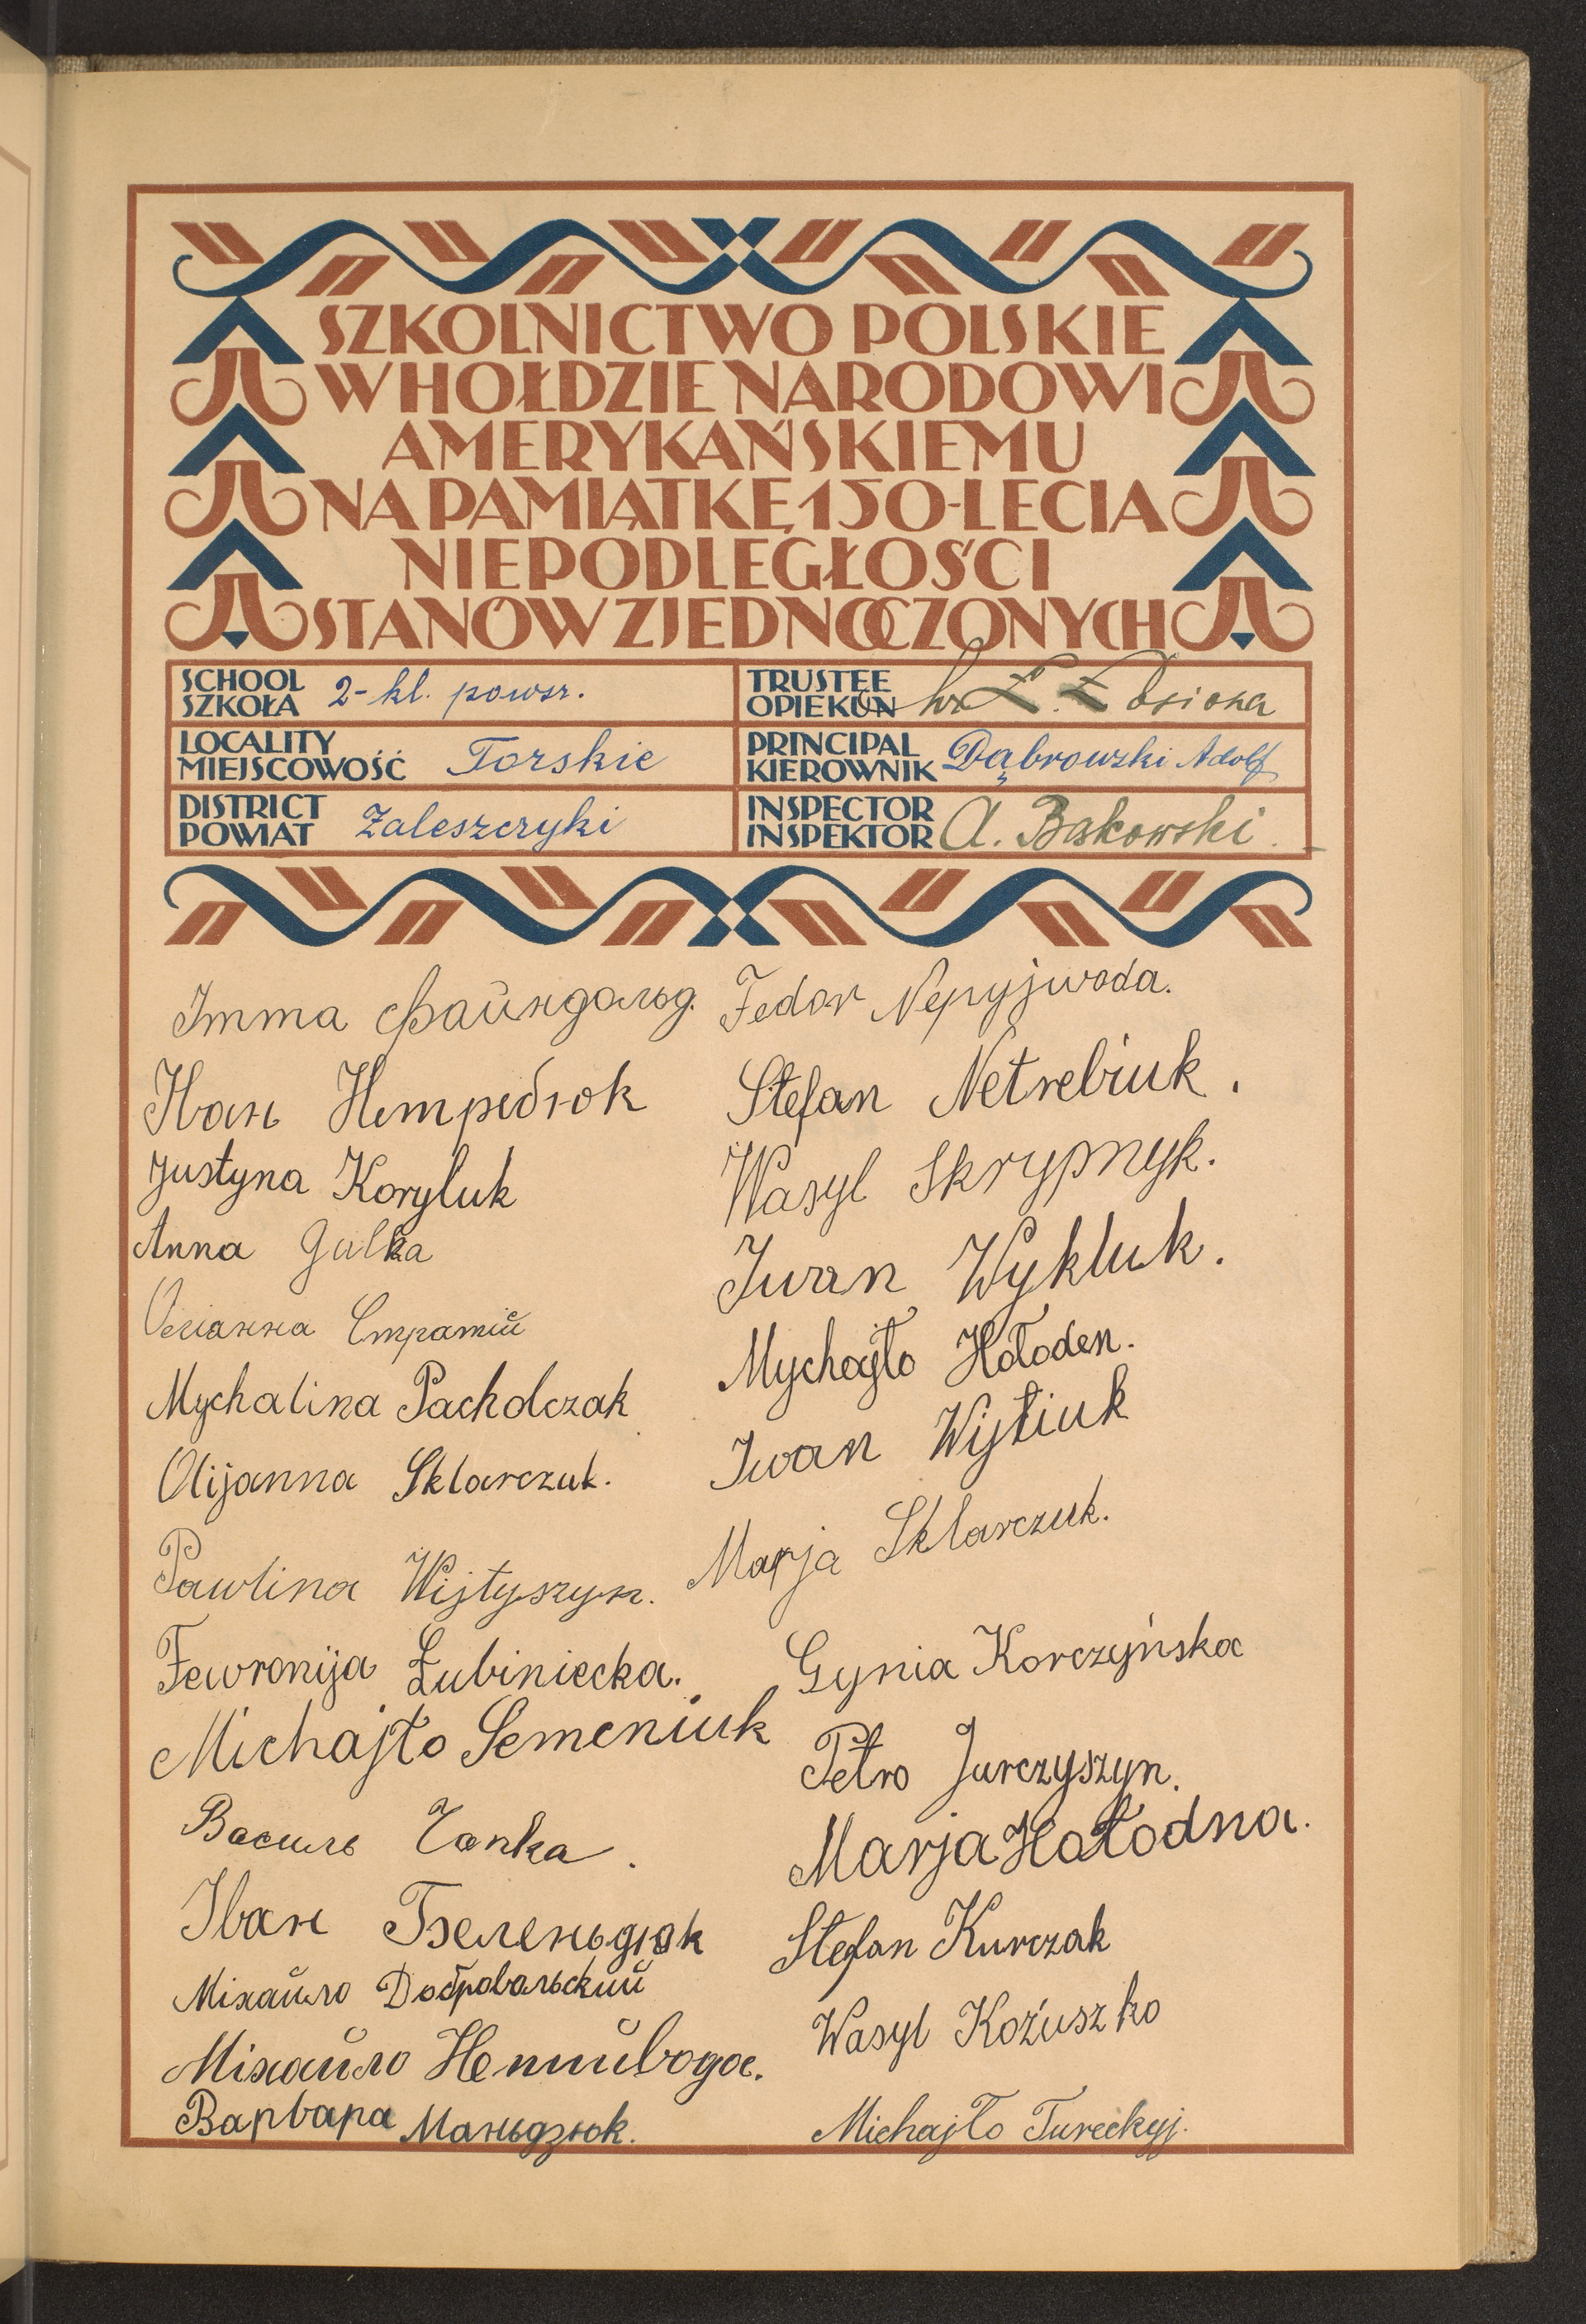 SZKOLNICTWO POLSKIE
W HOŁDZIE NARODOWI
AMERYKAŃSKIEMU
NA PAMIĄTKĘ 150-LECIA
NIEPODLEGŁOŚCI
STANÓW ZJEDNOCZONYCH
SCHOOL
SZKOŁA 2-kl. powsz.
LOCALITY
MIEJSCOWOŚĆ Torskie
DISTRICT
POWIAT Zaleszczyki
TRUSTEE
OPIEKUN
PRINCIPAL
KIEROWNIK Dąbrowski Adolf
INSPECTOR
INSPEKTOR A. Baskowski.
Імма Файнгольд.
Іван Нетребюк
Justyna Koryluk
Anna Gulka
Стратій
Mychalina Pacholczak
Olijanna Sklarczuk.
Pawlina Wijtyszyn.
Fewronija Łubiniecka.
Michajło Semeniuk
Василь Чапка.
Іван Беленьдюк
Міхайло Добровальский
Міхайло Непийвода.
Варвара Маньдзюк.
Fedor Nepyjwoda.
Stefan Netrebiuk.
Wasyl Skrypnyk.
Iwan Wykluk.
Mychajło Hołoden.
Iwan Wijtiuk
Marja Sklarczuk.
Gynia Korczyńska
Petro Jurczyszyn.
Marja Hołodna.
Stefan Kurczak
Wasyl Kożuszko
Michajło Tureckyj.